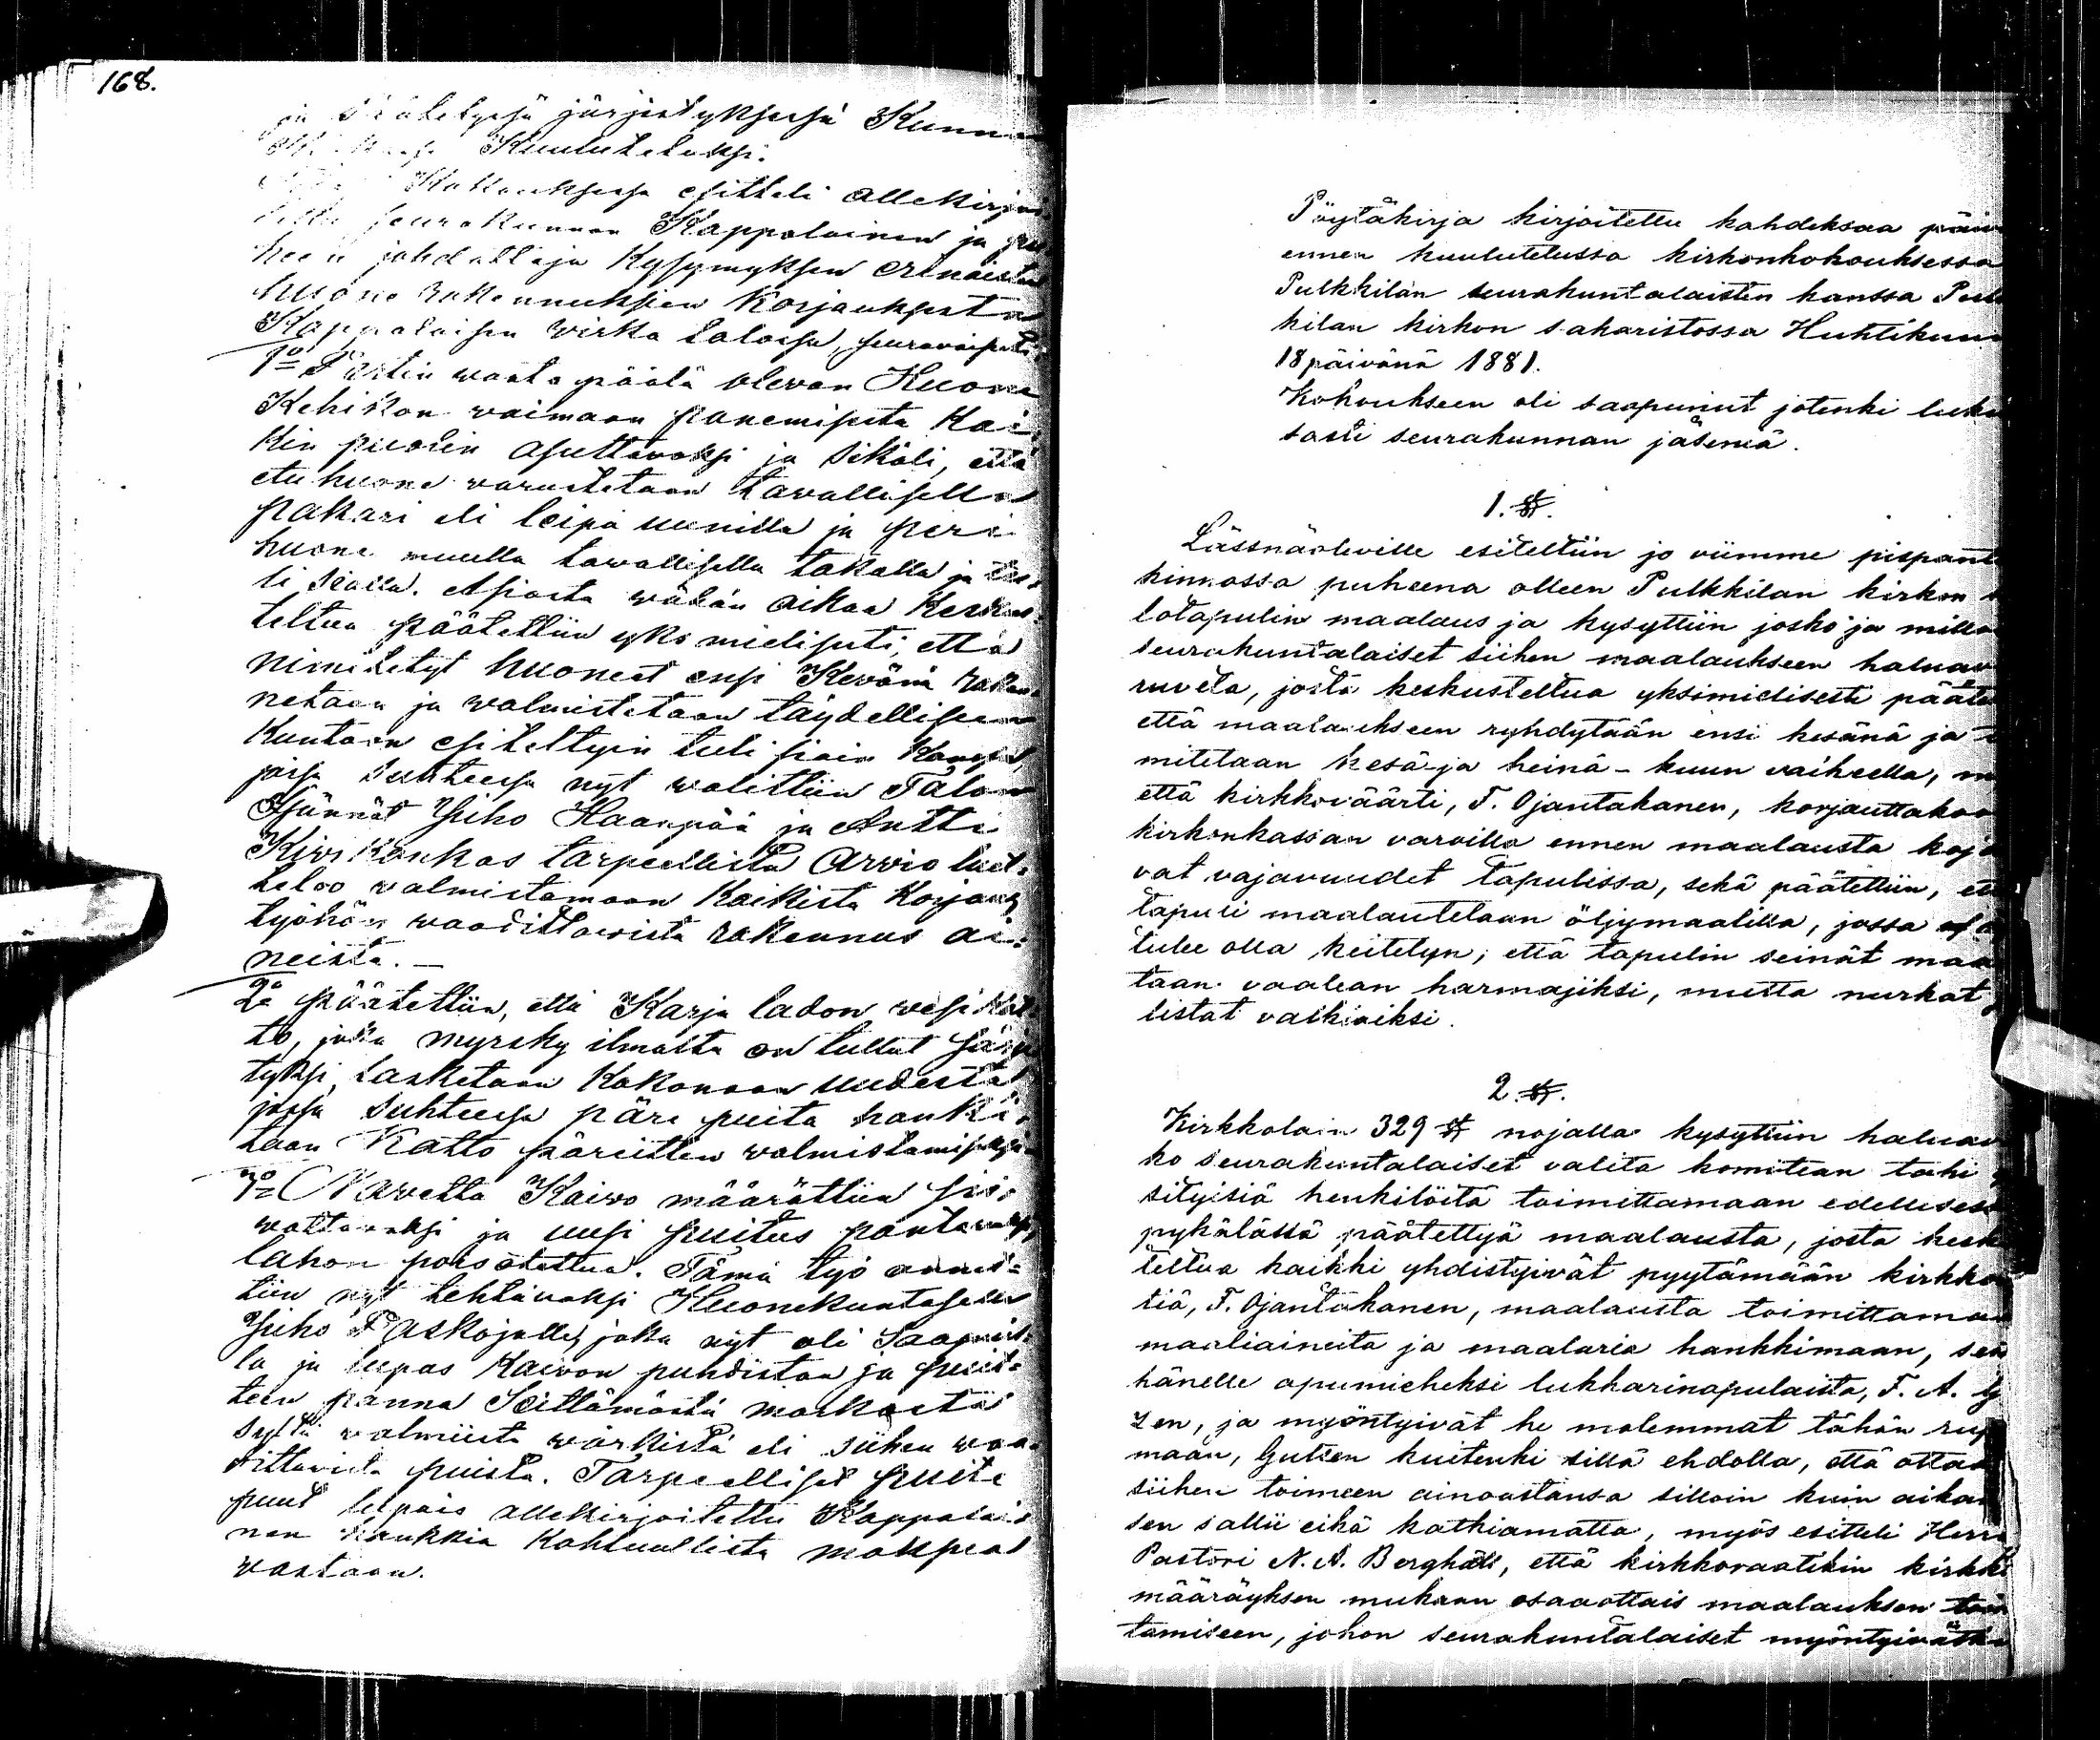 168.
järjestyksessä Kunn
Kuulutetuksi.
Kokouksessa esitteli allekirjoi
seurakunnan Kappalainen ja pu
heen johdattaja Kysymyksen erinäisten
huone rakennuksien Korjauksesta
Kappalaisen wirka talossa, seurawaisesti
1o Pirtin wasta päätä olewan Huone
Kehikon woimaan panemisesta Kai
kin puolin asuttawaksi ja sikäli, että
etuhuone warustetaan tawallisella
pakari eli leipä uunilla ja perä
huone muulla tawallisella takalla ja
li sialla. Asiasta wähän aikaa Keskus
teltua päätettiin yksimielisesti, että
nimitetyt huoneet ensi Kevänä raken
netaan ja walmistetaan täydelliseen
Kuntoon esiteltyin tulisiain Kanssa,
jossa suhteessa nyt walittiin Talon
Isännät Juho Haanpää ja Antti
Kiwikankas tarpeellista arvio luet=
teloo walmistamaan Kaikista Korjaus
työhön waadittawista rakennus ai=
neista.—
2o päätettiin, että Karja ladon wesikat
to, joka myrsky ilmasta on tullut särje
tyksi, lasketaan Kokonaan uudesta
jossa suhteessa päre puita hanki
taan Katto päreitten walmistamiseksi
3o Navetta Kaiwo määrättiin sii=
wottawaksi ja uusi puitus pantawaksi
lahon poisotettua. Tämä työ annet=
tiin nyt tehtäwäksi Huonekuntasen
Juho Paskojalle, joka nyt oli Saapuvil
la ja lupas Kaiwon puhdistaa ja puit=
teen panna Seittämästä markasta
syltä walmiista wärkistä eli siihen waa
dittawista puista. Tarpeelliset puite
puut lupais allekirjoitettu Kappalai=
nen hankkia Kohtuullista maksoa
wastaan.
Pöytäkirja kirjoitettu kahdeksaa päiv
ennen kuulutetussa kirkonkokouksessa
Pulkkilan seurakuntalaisten kanssa Pulk
kilan kirkon sakaristossa Huhtikuun
18 päivänä 1881.
Kokoukseen oli saapunut jotenki luku
sasti seurakunnan jäseniä.
1. §.
Lässnäoleville esiteltiin jo viimme pispant
kinnossa puheena olleen Pulkkilan kirkon
lotapulin maalaus ja kysyttiin josko ja milla
seurakuntalaiset siihen maalaukseen haluav
ruveta, josta keskusteltua yksimielisesti päätet
että maalaukseen ryhdytään ensi kesänä ja
mitetaan kesä-ja heinä-kuun vaiheella, 
että kirkkoväärti, F. Ojantakanen, korjauttakoo
kirkonkassan varoilla ennen maalausta koja
vat vajavuudet tapulissa, sekä päätettiin, et
tapuli maalautetaan öljymaalilla, jossa
tulee olla keitetyn; että tapulin seinät maa
taan vaalean harmajiksi, mutta nurkat
listat valkiaiksi.
2. §.
Kirkkolain 329 § nojalla kysyttiin haluav
ko seurakuntalaiset valita komitean tahi
sityisiä henkilöitä toimittamaan edellisess
pykälässä päätettyä maalausta, josta kesk
teltua kaikki yhdistyivät pyytämään kirkko
tiä, F. Ojantakanen, maalausta toimittamaa
maaliaineita ja maalaria hankkimaan, sek
hänelle apumieheksi lukkarinapulaista, F. A. G
zen, ja myöntyivät he molemmat tähän ru
maan, Gutzen kuitenki sillä ehdolla, että ottaa
siihen toimeen ainoastansa silloin kuin aikan
sen sallii eikä katkiamatta, myös esitteli Herra
Pastori N. A. Berghäll, että kirkkoraatikin kirkk
määräyksen mukaan osaaottais maalauksen toi
tamiseen, johon seurakuntalaiset myöntyivätki